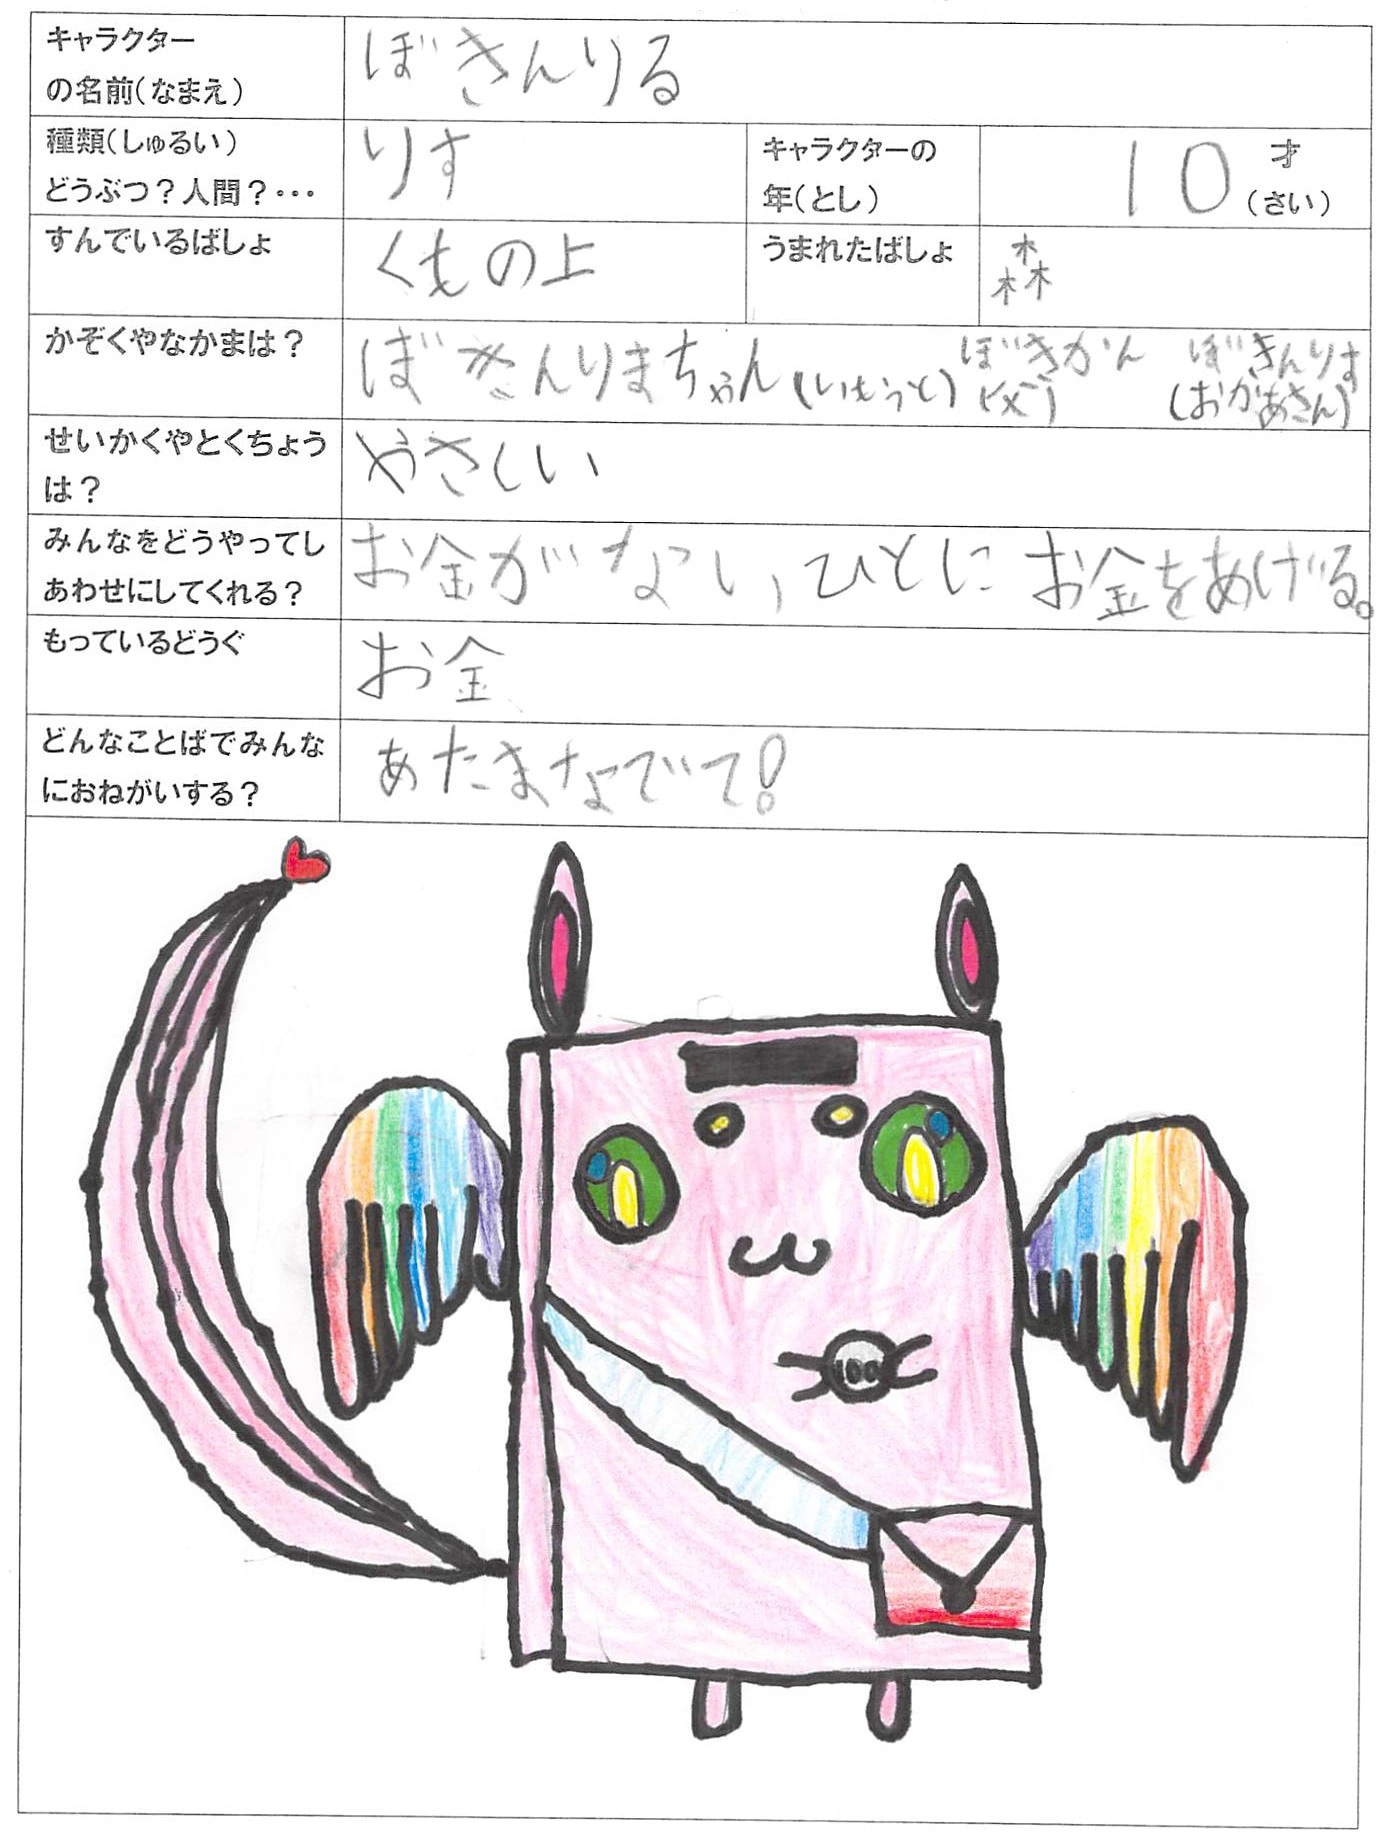 キャラクター
の名前(なまえ)
ぼきんりる
種類(しゅるい)
どうぶつ?人間?・・・
りす
キャラクターの
年(とし)
10 才
(さい)
すんでいるばしょ
くもの上
うまれたばしょ
森
かぞくやなかまは?
ぼきんりまちゃん(いもうと)
ぼきかん
(父)
ぼきんりす
(おかあさん)
せいかくやとくちょう
は?
やさしい
みんなをどうやってし
あわせにしてくれる?
お金がない、ひとにお金をあげる。
もっているどうぐ
お金
どんなことばでみんな
におねがいする?
あたまなでて!
100